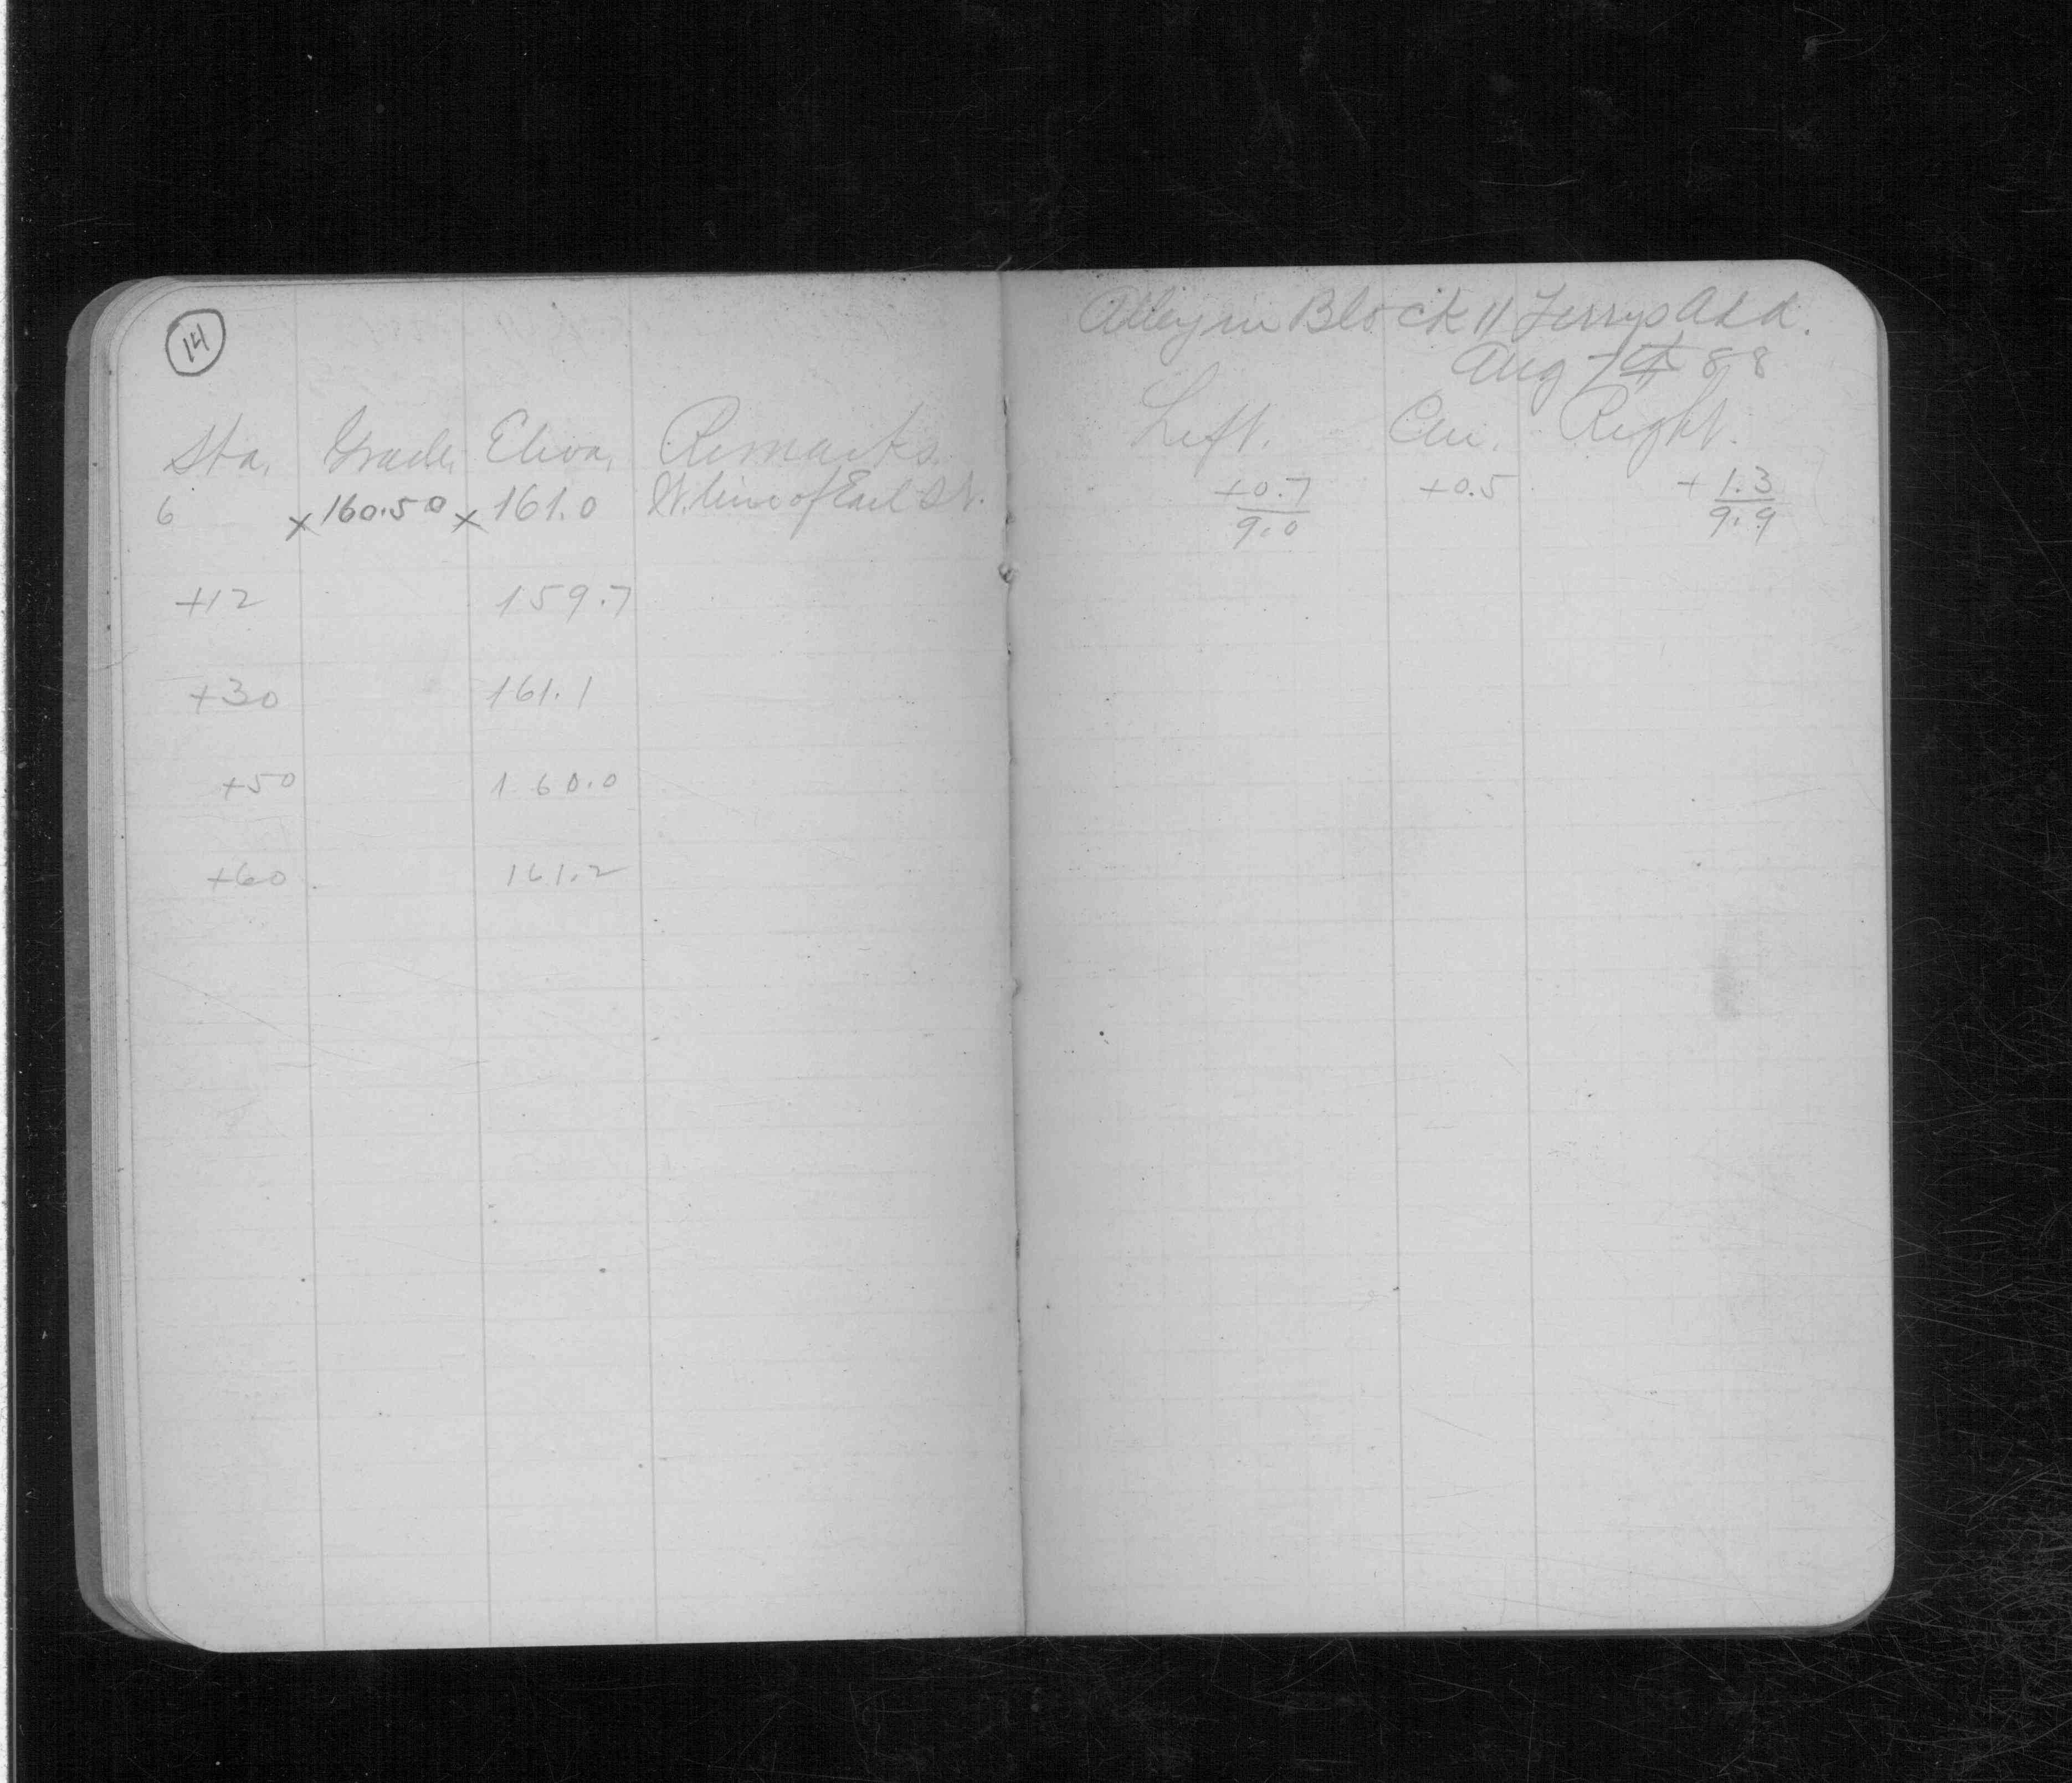 14
Alley in Block 11 Terrys Add.
Aug 7th 88
Sta. Grade. Eleva. Remarks. Left. Cen. Right.
6 x 160.50 x 161.0 W. line of Earl St. +0.7/9.0 +0.5 +1.3/9.9
+12 159.7
+30 161.1
+50 160.0
+60. 161.2